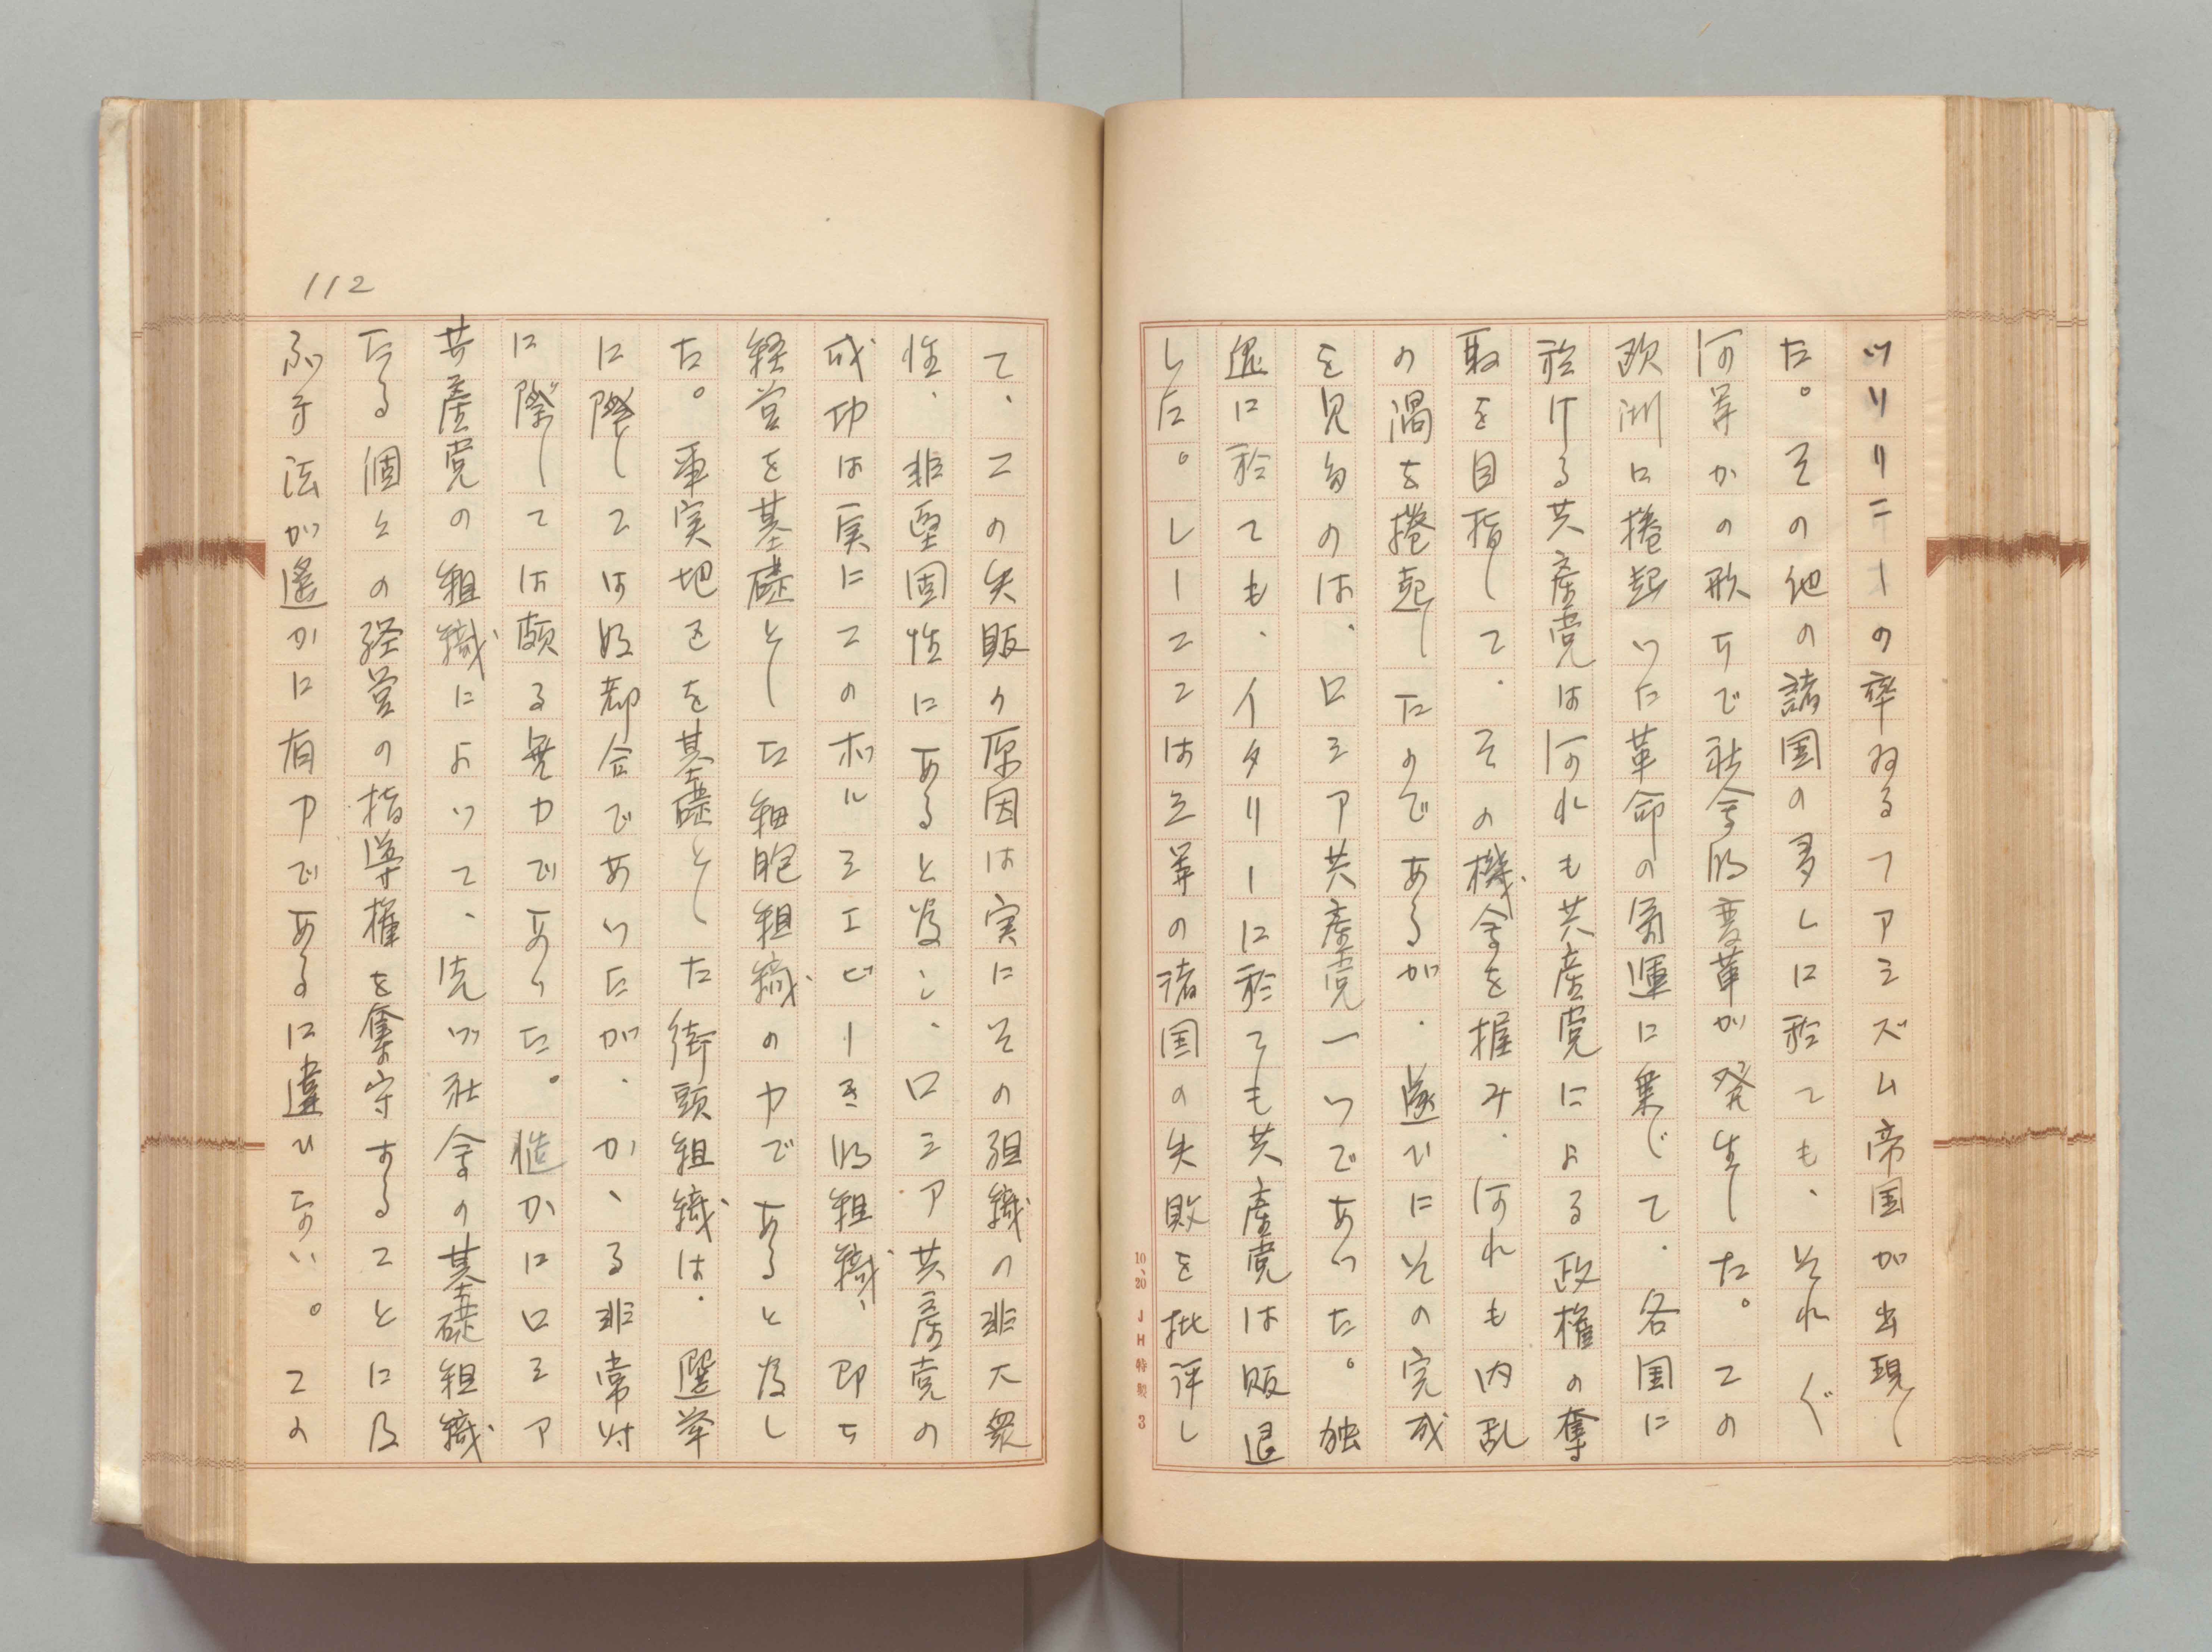 ッソリニーの率ゐるファシズム帝国が出現し
た。その他の諸国の多くに於ても、それ〴〵
何等かの形すで社会的変革が発生した。この
欧洲に捲起つた革命の気運に乗じて、各国に
於ける共産党は何れも共産党による政権の奪
取を目指して、その機会を握み、何れも内乱
の渦を捲起したのであるが、遂ひにその完成
を見たのは、ロシア共産党一つであつた。独
逸に於ても、イタリーに於ても共産党は敗退
した。レーニンは之等の諸国の失敗を批評し
112
て、この失敗の原因は実にその組織の非大衆
性、非堅固性にあると為し、ロシア共産党の
成功は実にこのボルシエビーキ的組織、即ち
経営を基礎とした細胞組織の力であると為し
た。事実地区を基礎とした街頭組織は、選挙
に際しては好都合であつたが、かゝる非常時
に際しては頗る無力であつた。慥かにロシア
共産党の組織によつて、先づ社会の基礎組織
たる個々の経営の指導権を奪守することに及
ぶ方法が遙かに有力であるに違ひない。この
10、20 JH特製 3